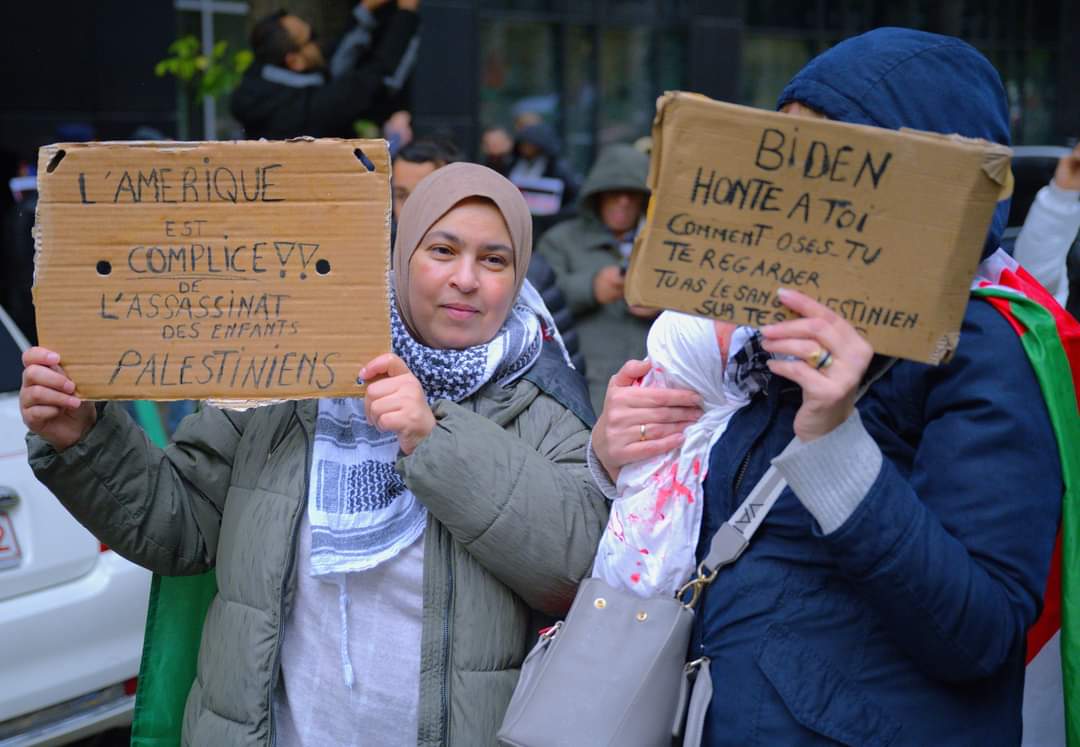 L'AMERIQUE
EST
COMPLICE!!
DE
L'ASSASSINAT
DES ENFANTS
PALESTINIENS
BIDEN
HONTE A TOI
COMMENT OSES-TU
TE REGARDER
TU AS LE SANG
SUR TES
VA
2